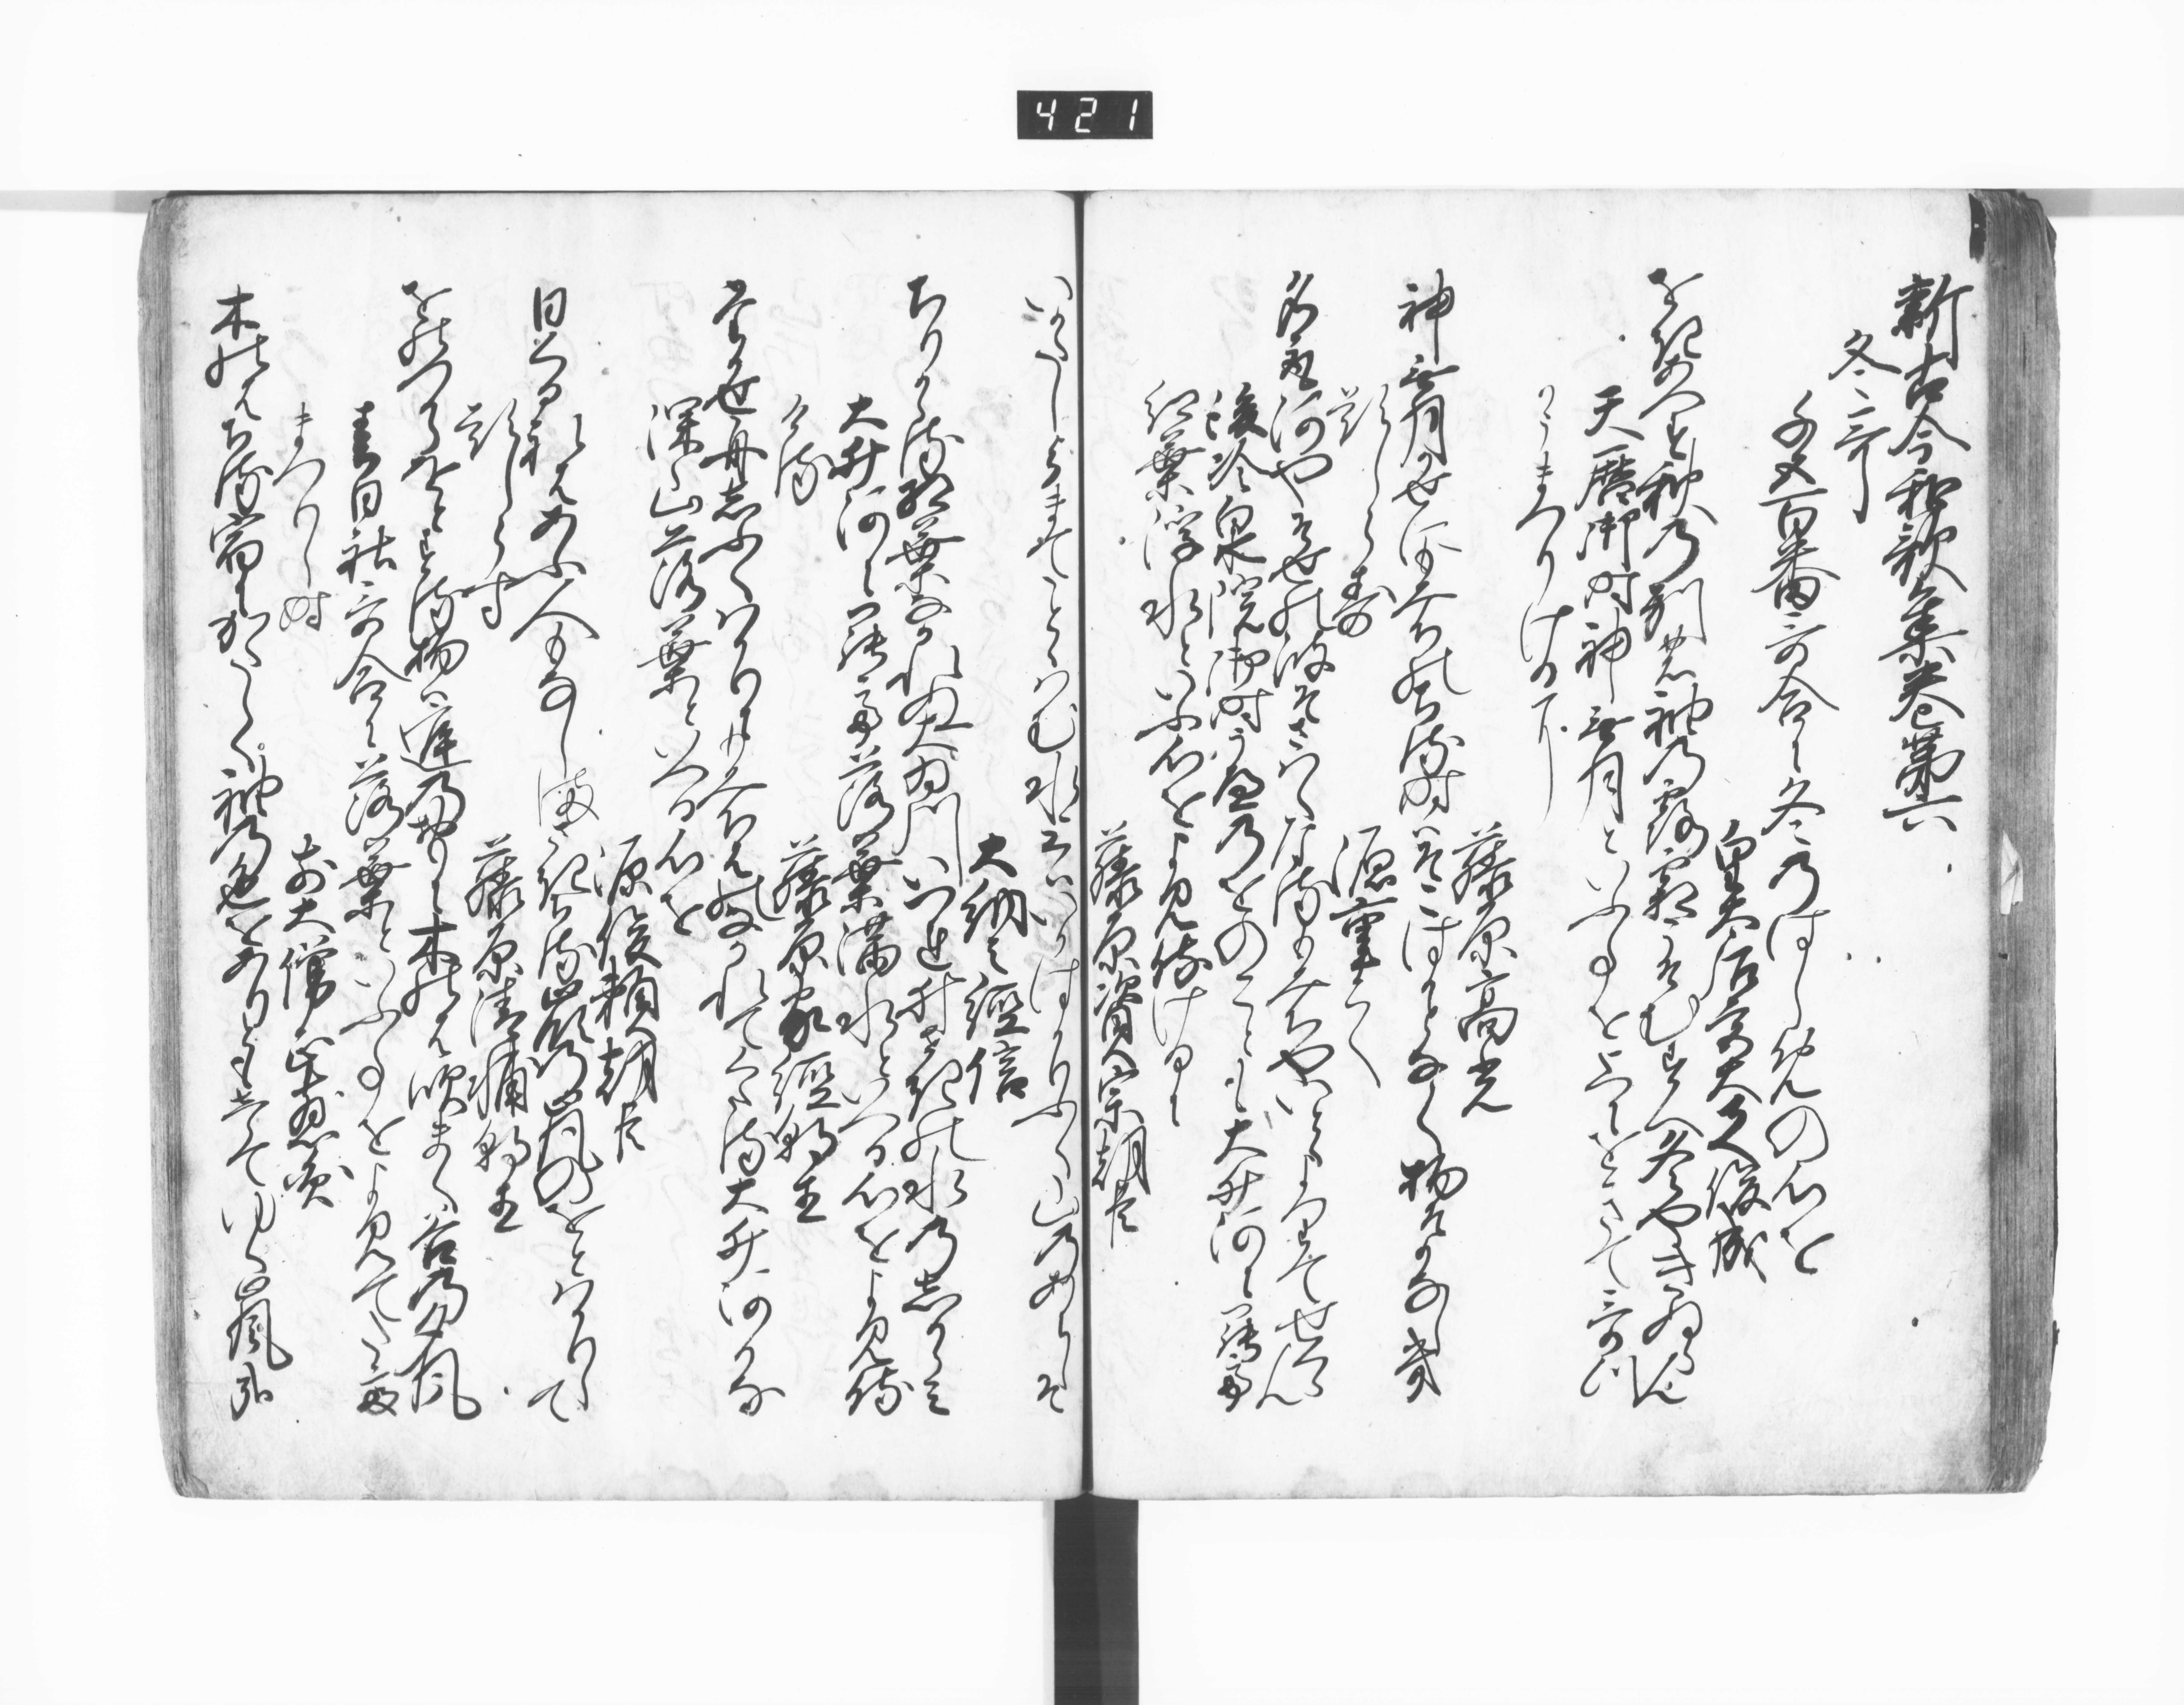 421
新古今和歌集巻第六
冬哥
千五百番哥合に冬のはしめの心を
皇太后宮大夫俊成
をきあかす秋の別の袖の露霜こそむすへ冬やきぬらん
天暦御時神無月といふことをかみにをきて哥つ
かうまつりけるに
藤原高光
神無月風に紅葉のちる時はそこはかとなく物そかなしき
題しらす
源重之
名取河やなせの浪そさはくなる紅葉やいとゝよりてせくらん
後冷泉院御時うへのをのことも大井河にまかりて
紅葉浮水といふ心をよみ侍けるに
藤原資宗朝臣
いかたしよまてことゝはむ水上はいかはかりふく山のあらしそ
大納言経信
ちりかゝる紅葉なかれぬ大井河いつれ井せきの水のしからみ
大井河にまかりて落葉満水といへる心をよみ侍
ける
藤原家経朝臣
高瀬舟しふくはかりに紅葉はのなかれてくたる大井河かな
深山落葉といへる心を
源俊頼朝臣
日くるれはあふ人もなしまさきちる峯の嵐のをとはかりして
題しらす
藤原清輔朝臣
をのつからをとする物は庭の面に木のは吹まく谷の夕風
春日社哥合に落葉といふことをよみてたて
まつりし時
前大僧正慈円
木のはちる宿にかたしく袖の色をありともしらてゆく嵐哉